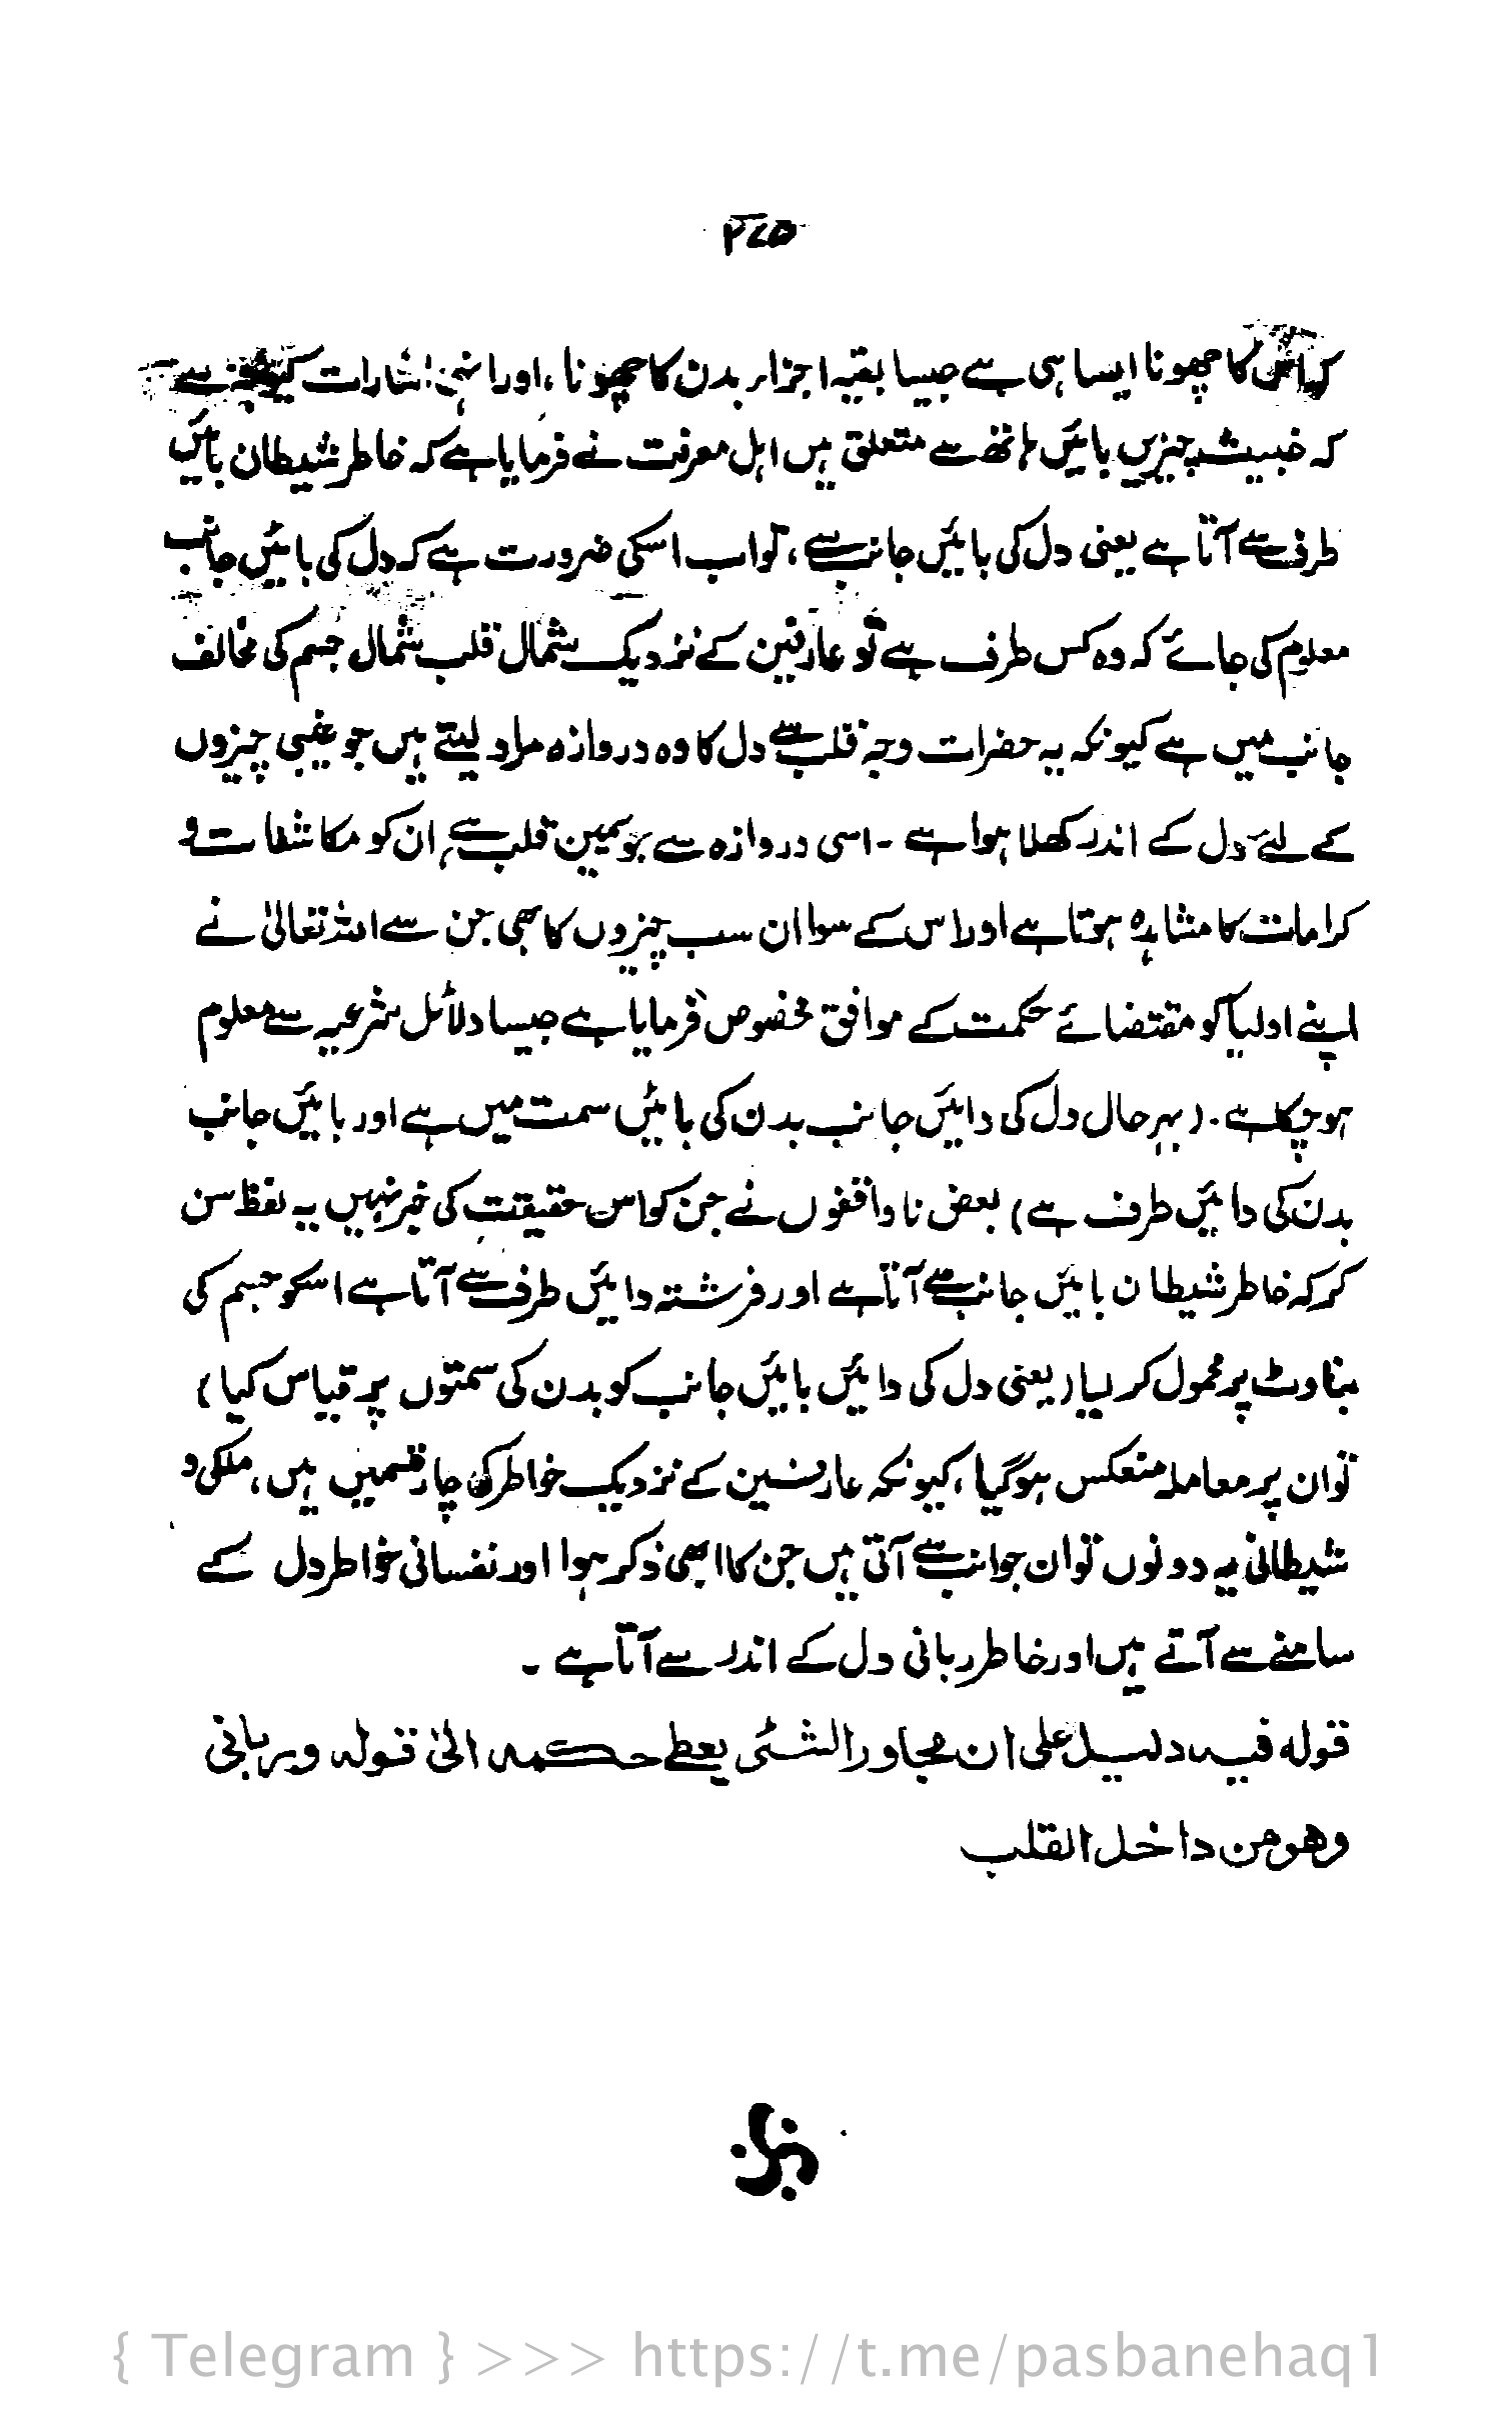 ۲۷۵
کہ اس کا چھونا ایسا ہی ہے جیسا بقیہ اجزاء بدن کا چھونا، اور انہی اشارات کیوجہ سے
کہ خبیث چیزیں بائیں ہاتھ سے متعلق ہیں اہل معرفت نے فرمایا ہے کہ خاطر شیطان بائیں
طرف سے آتا ہے یعنی دل کی بائیں جانب سے، تو اب اسکی ضرورت ہے کہ دل کی بائیں جانب
معلوم کی جائے کہ وہ کس طرف ہے تو عارفین کے نزدیک شمال قلب شمال جسم کی مخالف
جانب میں ہے کیونکہ یہ حضرات وجہ قلب سے دل کا وہ دروازہ مراد لیتے ہیں جو غیبی چیزوں
کے لئے دل کے اندر کھلا ہوا ہے ۔ اسی دروازہ سے جو یمین قلب ہے ان کو مکاشفات و
کرامات کا مشاہدہ ہوتا ہے اور اس کے سوا ان سب چیزوں کا بھی جن سے اللہ تعالیٰ نے
اپنے اولیا کو مقتضائے حکمت کے موافق مخصوص فرمایا ہے جیسا دلائل شرعیہ سے معلوم
ہو چکا ہے ۔ (بہر حال دل کی دائیں جانب بدن کی بائیں سمت میں ہے اور بائیں جانب
بدن کی دائیں طرف ہے) بعض نا واقفوں نے جن کو اس حقیقت کی خبر نہیں یہ لفظ سن
کر کہ خاطر شیطان بائیں جانب سے آتا ہے اور فرشتہ دائیں طرف سے آتا ہے اسکو جسم کی
بناوٹ پر محمول کر لیا (یعنی دل کی دائیں بائیں جانب کو بدن کی سمتوں پر قیاس کیا)
تو ان پر معاملہ منعکس ہو گیا، کیونکہ عارفین کے نزدیک خواطر کی چار قسمیں ہیں، ملکی و
شیطانی یہ دونوں تو ان جوانب سے آتی ہیں جن کا ابھی ذکر ہوا اور نفسانی خواطر دل کے
سامنے سے آتے ہیں اور خاطر ربانی دل کے اندر سے آتا ہے ۔
قوله فيه دليل على ان مجاور الشئى يعطے حكمه الىٰ قوله وربانى
وهو من داخل القلب
{ Telegram } >>> https://t.me/pasbanehaq1